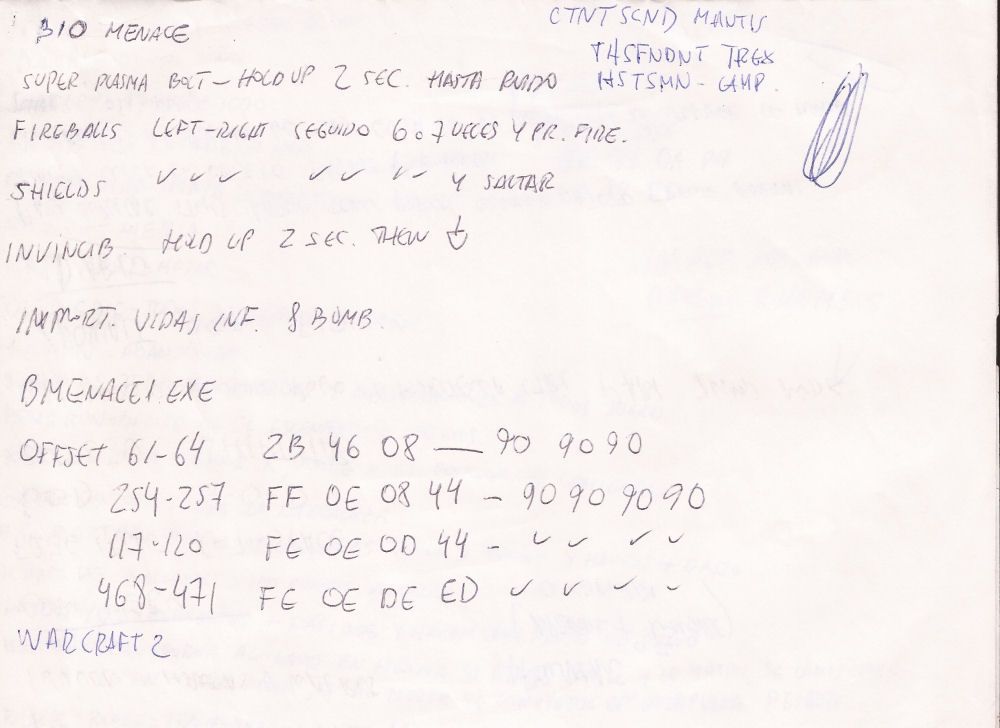 BIO MENACE
CTNTSCND MANTIS
THSFNDNT TREX
HSTSMN - CAMP.
SUPER PLASMA BOLT - HOLD UP 2 SEC. HASTA RUIDO
FIREBALLS LEFT-RIGHT SEGUIDO 6 o 7 VECES Y PR. FIRE.
SHIELDS ✓ ✓ ✓ ✓ ✓ ✓ ✓ Y SALTAR
INVINCIB HOLD UP 2 SEC. THEN ↓
IMPORT. VIDAS INF. & BOMB.
BMENACE1.EXE
OFFSET 61-64 2B 46 08 — 90 90 90
254-257 FF 0E 08 44 - 90 90 90 90
117-120 FE 0E 0D 44 - ✓ ✓ ✓ ✓
468-471 FE 0E DE ED ✓ ✓ ✓ ✓
WARCRAFT 2